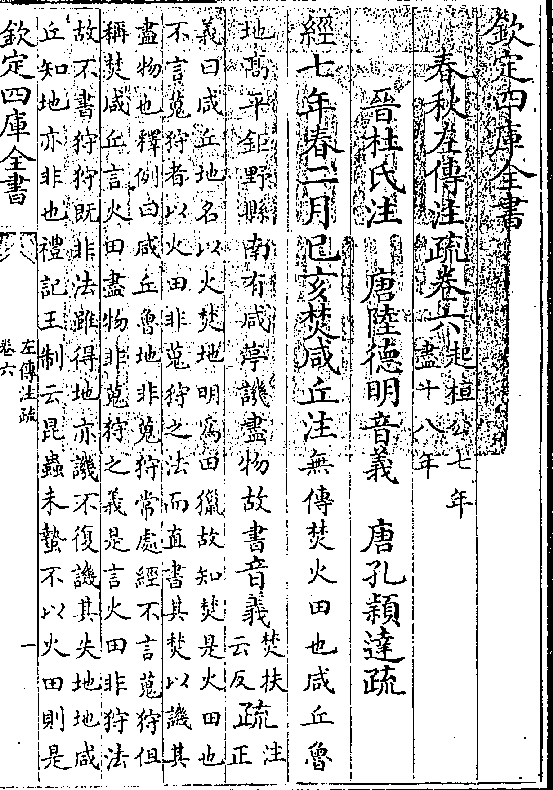 欽定四庫全書
春秋左傳注疏卷六 起桓公七年
盡十八年
晉杜氏注 唐陸德明音義 唐孔穎達疏
經七年春二月己亥焚咸丘注無傳焚火田也咸丘魯
地髙平鉅野縣南有咸亭譏盡物故書音義焚扶云反疏注正
義曰咸丘地名以火焚地明爲田獵故知焚是火田也
不言蒐狩者以火田非蒐狩之法而直書其焚以譏其
盡物也釋例曰咸丘魯地非蒐狩常處經不言蒐狩但
稱焚咸丘言火田盡物非蒐狩之義是言火田非狩法
故不書狩狩既非法雖得地亦譏不復譏其失地地咸
丘知地亦非也禮記王制云昆蟲未蟄不以火田則是
欽定四庫全書
左傳注疏
卷六
一